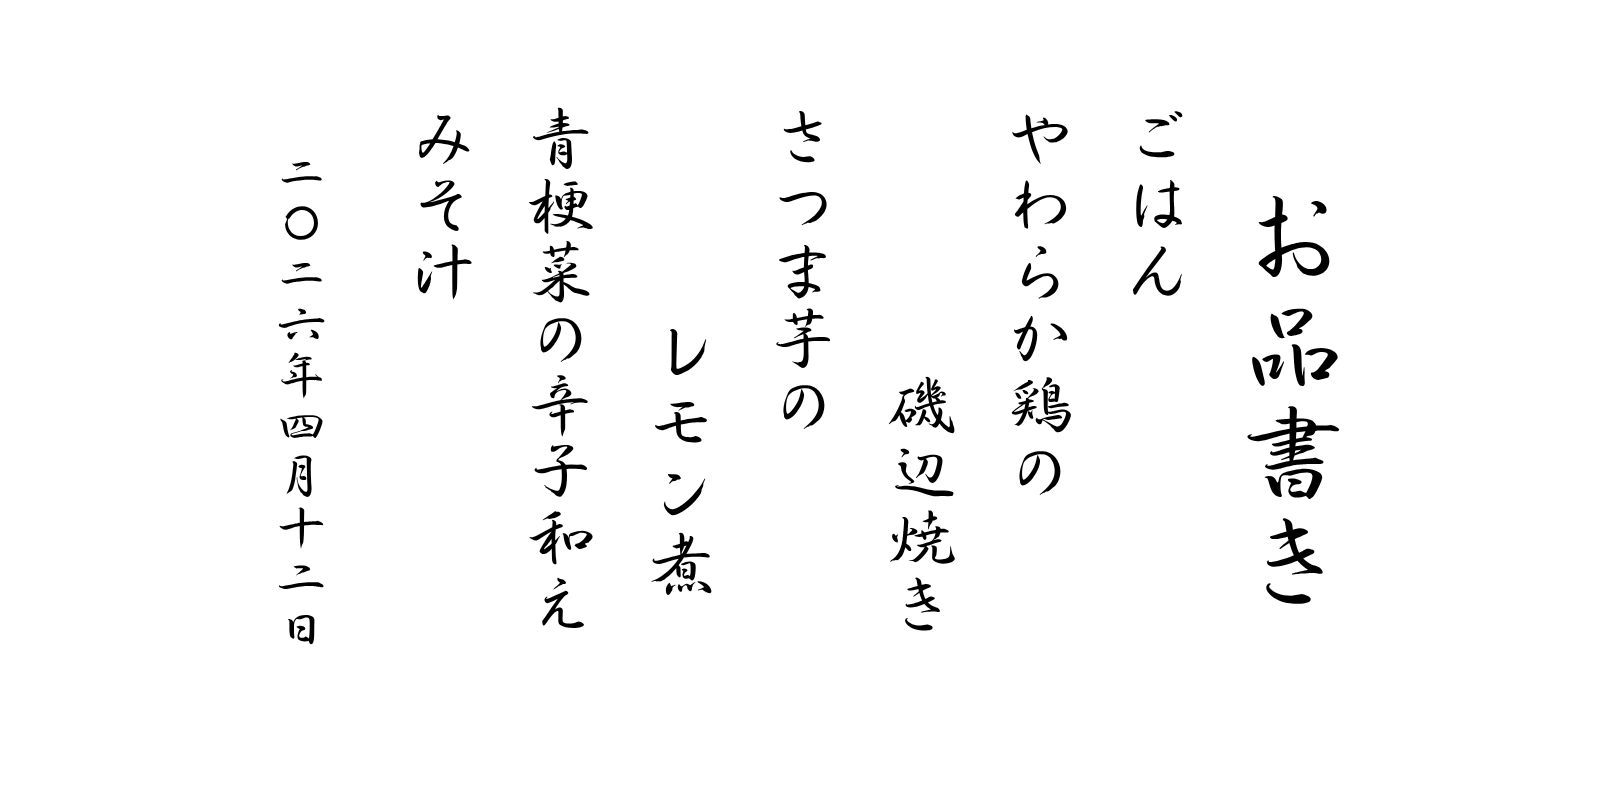 お品書き
ごはん
やわらか鶏の
磯辺焼き
さつま芋の
レモン煮
青梗菜の辛子和え
みそ汁
二〇二六年四月十二日